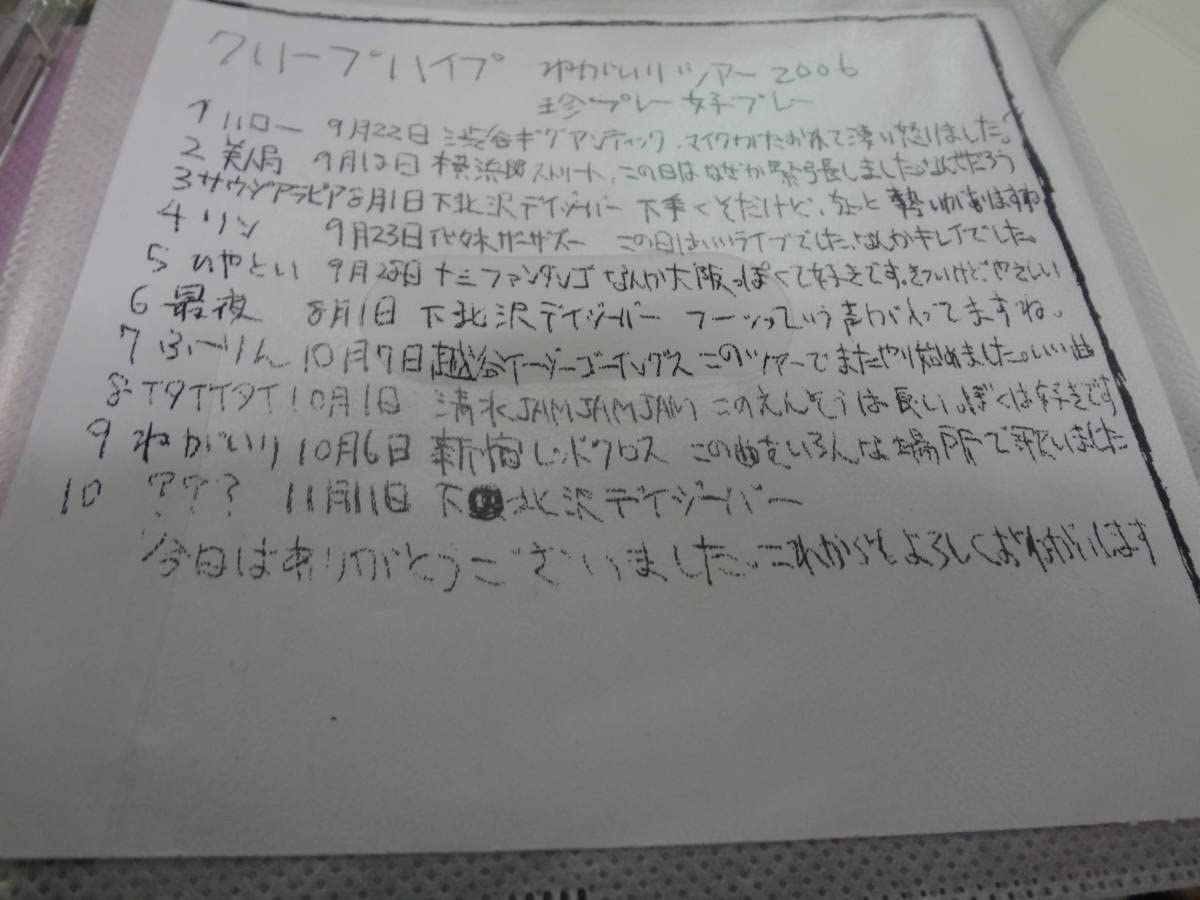 クリープハイプ ねがいりツアー2006
珍プレー好プレー
1 ハロー 9月22日 渋谷ギグアンティック、マイクがたおれて凄い怒りました。
2 美人局 9月18日 横浜 ストリート、この日はなぜか緊張しました。なぜだろう
3 サウジアラビア 8月1日 下北沢デイジーバー 下手くそだけど、ちょっと勢いがありますね
4 リン 9月23日 代々木ザーザズー この日はいいライブでした。なんかキレイでした。
5 ひやとい 9月28日 十三ファンダンゴ なんか大阪っぽくて好きです。きついけど、やさしい
6 最夜 8月1日 下北沢デイジーバー フーッっていう声が入ってますね。
7 ふーりん 10月7日 越谷イージーゴーイングス このツアーでまたやり始めました。いい曲
8 イタイイタイ 10月1日 清水JAMJAMJAM このえんそうは長い。ぼくは好きです
9 ねがいり 10月6日 新宿レッドクロス この曲をいろんな場所で歌いました
10 ??? 11月11日 下北沢デイジーバー
今日はありがとうございました。これからもよろしくおねがいします